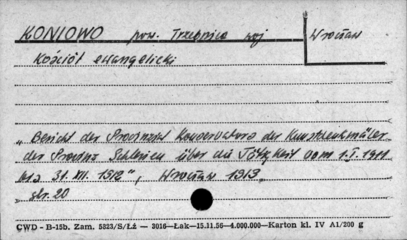 KONIOWO pow. Trzebnica woj Wrocław
Kościół ewangelicki
„Bericht des Provinzial Konservators der Kunstdenkmäler
der Provinz Schlesien über die Tätigkeit vom 1.I.1911
bis 31.XII.1912", Wrocław 1913,
str. 20
CWD - B-15b. Zam. 5823/S/Łź — 3016—Łak—15.11.56—4.000.000—Karton kl. IV A1/200 g